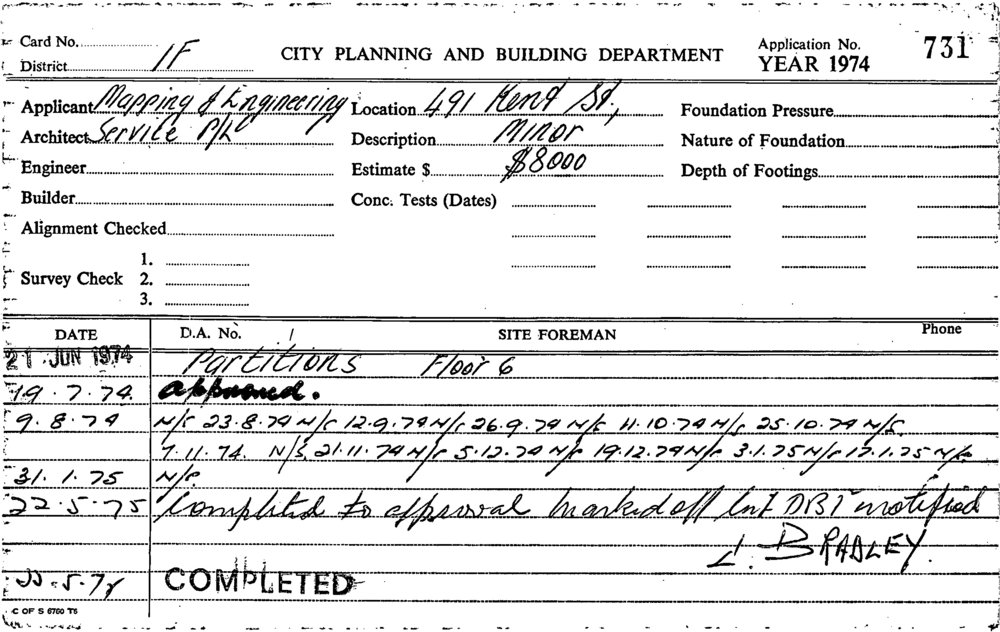 Card No.
District 1F
CITY PLANNING AND BUILDING DEPARTMENT
Application No. 731
YEAR 1974
Applicant Mapping & Engineering Location 491 Kent St., Foundation Pressure
Architect Service P/L Description Minor Nature of Foundation
Engineer Estimate $ $8000 Depth of Footings
Builder Conc. Tests (Dates)
Alignment Checked
1.
Survey Check 2.
3.
DATE D.A. No. / SITE FOREMAN Phone
21 JUN 1974 Partitions Floor 6
19.7.74. approved.
9.8.74 N/S 23.8.74 N/S 12.9.74 N/S 26.9.74 N/S 11.10.74 N/S 25.10.74 N/S
7.11.74. N/S 21.11.74 N/S 5.12.74 N/S 19.12.74 N/S 3.1.75 N/S 17.1.75 N/S
31.1.75 N/S
22.5.75 Completed to approval marked off notified
L. BRADLEY.
COMPLETED
C OF S 6760 T6